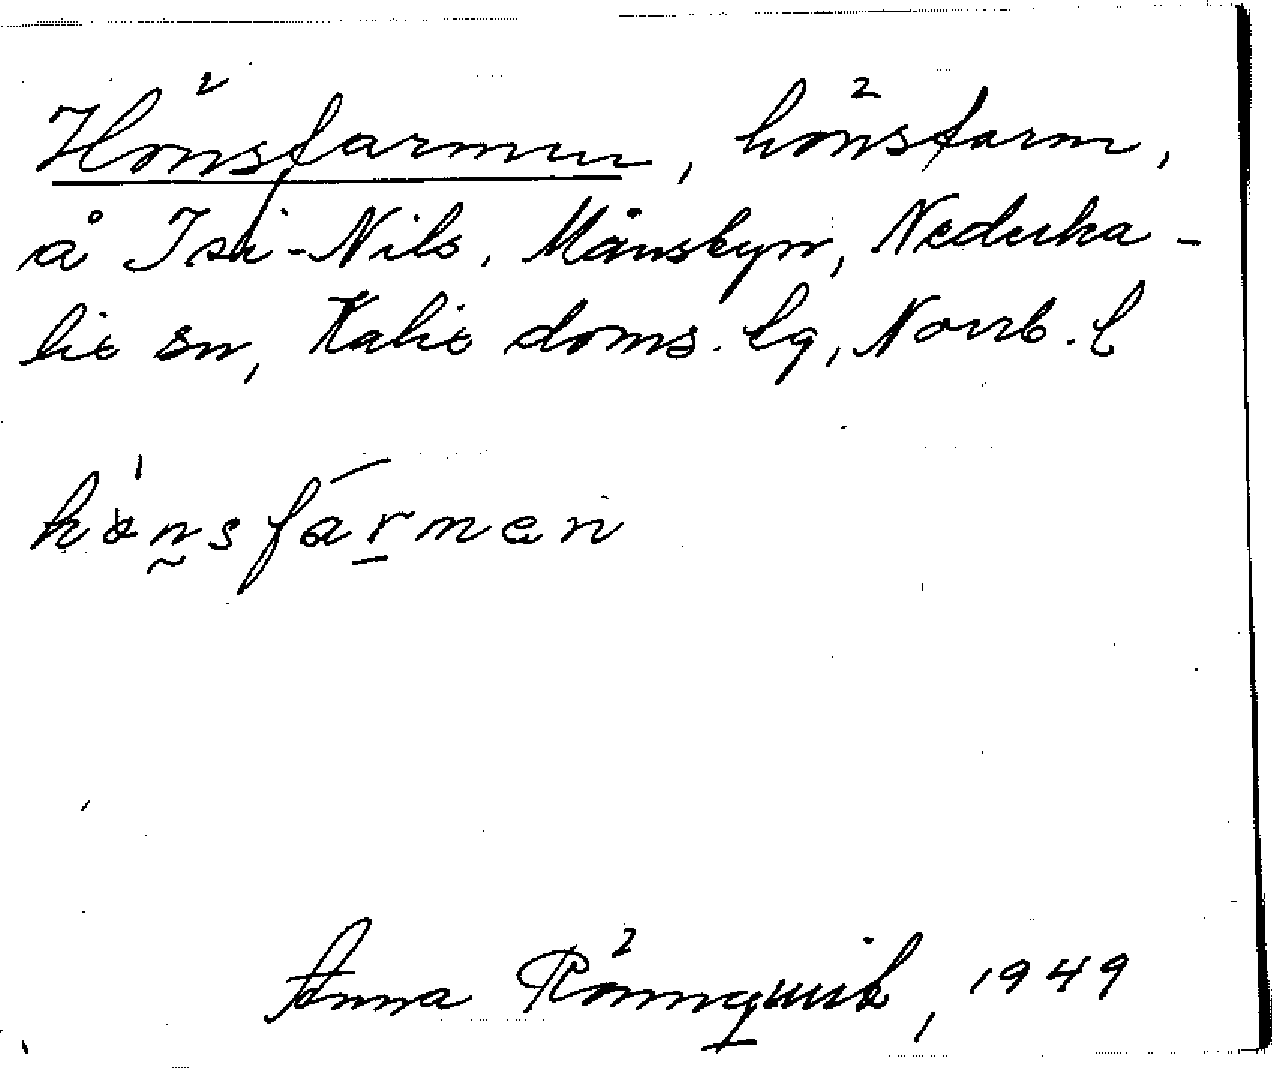 Hönsfarmen, hönsfarm,
å Isi-Nils, Månsbyn, Nederka-
lix sn, Kalix doms. lg, Norrb. l
hönsfarmen
Anna Rönnqvist, 1949